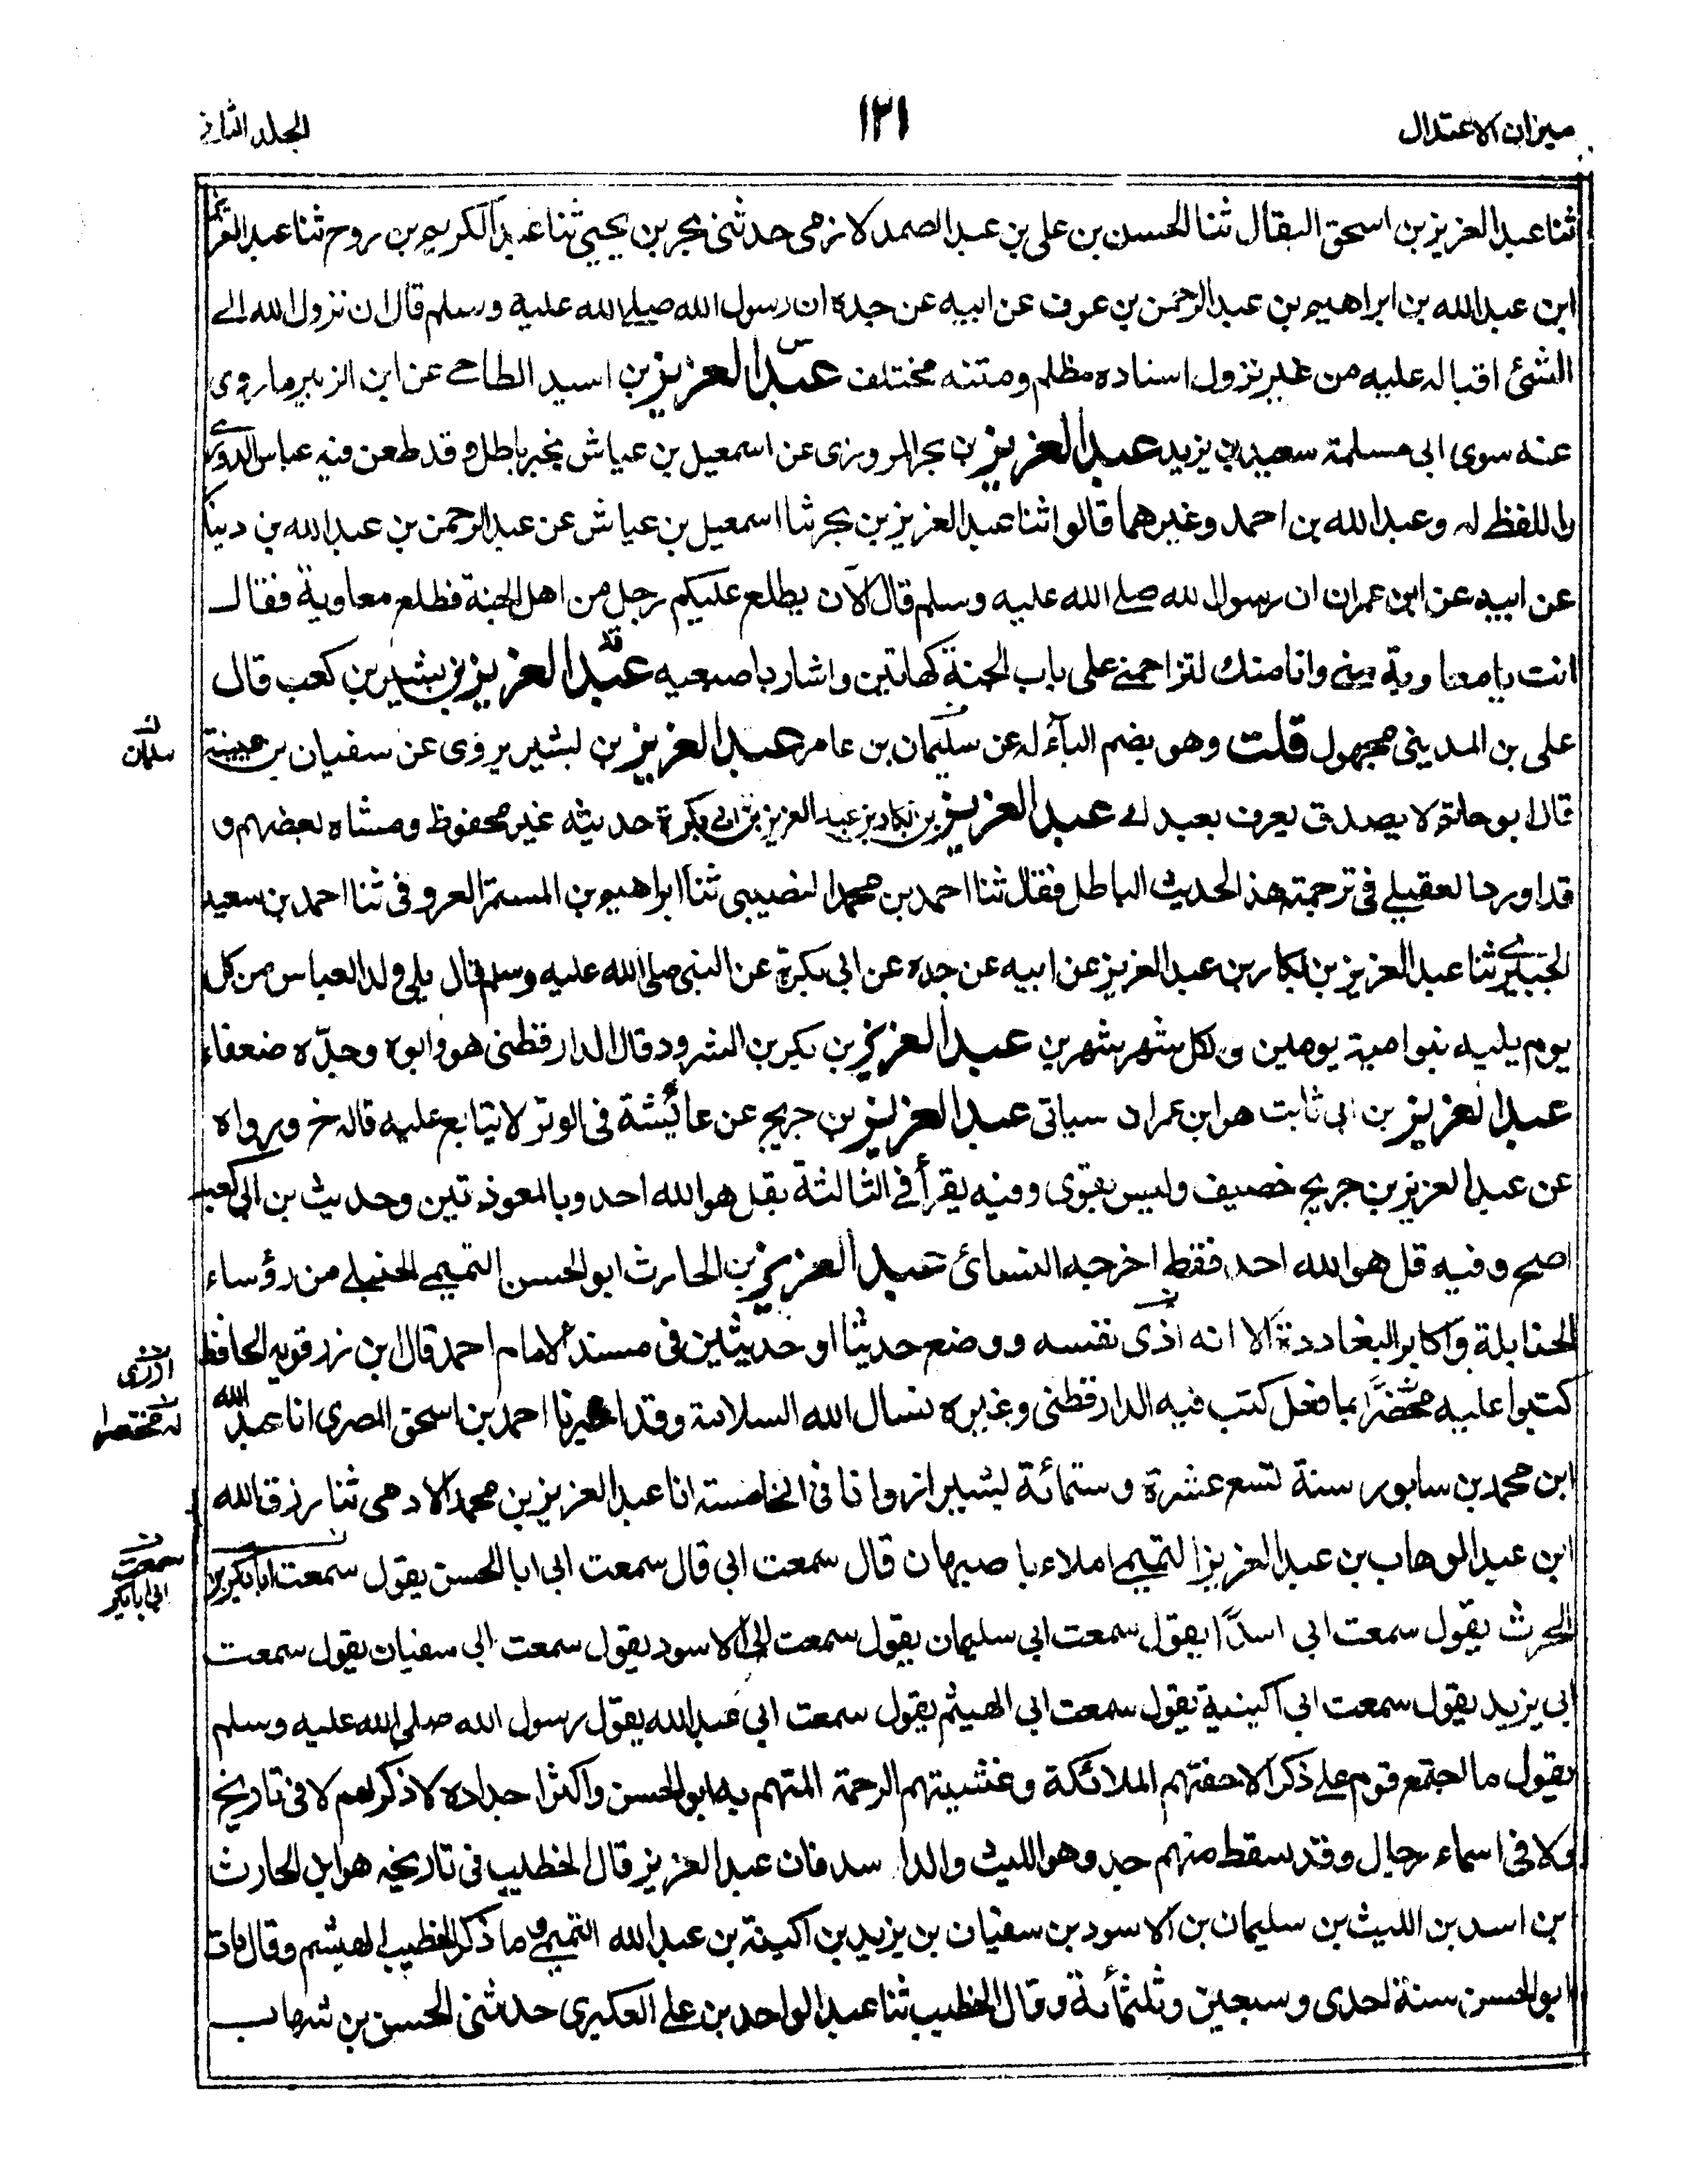 ميزان الاعتدال
١٢١
المجلد الثاني
ثنا عبد العزيز بن اسحق البقال ثنا الحسن بن على بن عبد الصمد الازمى حدثنى بحر بن يحيى ثنا عبد الكريم بن روح ثنا عبد العزيز
ابن عبد الله بن ابراهيم بن عبد الرحمن بن عوف عن ابيه عن جده ان رسول الله صلے الله عليه وسلم قال ان نزول الله الے
الشئ اقباله عليه من غير نزول اسناده مظلم ومتنه مختلف عبد العزيز بن اسيد الطاحے عن ابن الزبير ما روى
عنه سوى ابى مسلمة سعيد بن يزيد عبد العزيز بن بحر المروزى عن اسمعيل بن عياش بخبر باطل وقد طعن فيه عباس الدورى
واللفظ له وعبد الله بن احمد وغيرهما قالوا ثنا عبد العزيز بن بحر ثنا اسمعيل بن عياش عن عبد الرحمن بن عبد الله بن دينار
عن ابيه عن ابن عمران ان رسول الله صلے الله عليه وسلم قال الآن يطلع عليكم رجل من اهل الجنة فطلع معاوية فقال
انت يا معاوية منے وانا منك لتزاحمنے على باب الجنة كهاتين واشار باصبعيه عبد العزيز بن بشير بن كعب قال
على بن المدينى مجهول قلت وهو بضم الباء له عن سليمان بن عامر عبد العزيز بن بشير يروى عن سفيان بن عيينة
سلمان
قال ابو حاتم لا يصدق يعرف بعبد لے عبد العزيز بن بكار بن عبد العزيز بن ابى بكرة حديثه غير محفوظ ومشاه بعضهم و
قد اورد العقيلے فى ترجمته هذا الحديث الباطل فقال ثنا احمد بن محمد النصيبى ثنا ابراهيم بن المستمر العروفى ثنا احمد بن سعيد
الجبيرى ثنا عبد العزيز بن بكار بن عبد العزيز عن ابيه عن جده عن ابى بكرة عن النبى صلى الله عليه وسلم قال يلى ولد العباس من كل
يوم يليه بنو امية يومين ولكل شهر شهرين عبد العزيز بن بكر بن الشرود قال الدارقطنى هو وابوه وجده ضعفاء
عبد العزيز بن ابى ثابت هو ابن عمران سياتى عبد العزيز بن جريج عن عائشة فى الوتر لا يتابع عليه قاله خ ورواه
عن عبد العزيز بن جريج خصيف وليس بقوى وفيه يقرأ فے الثالثة بقل هو الله احد وبالمعوذتين وحديث بن ابى كعب
اصح وفيه قل هو الله احد فقط اخرجه النسائى عبد العزيز بن الحارث ابو الحسن التميمے الحنبلے من رؤساء
الحنابلة واكابر البغاددة الا انه اذى نفسه ووضع حديثا او حديثين فى مسند الامام احمد قال ابن زرقويه الحافظ
كتبوا عليه محضرا بما فعل كتب فيه الدارقطنى وغيره نسال الله السلامة وقد اخبرنا احمد بن اسحق المصرى انا عبد الله
ابن محمد بن سابور سنة تسع عشرة وستمائة بشيراز وانا فى الخامسة انا عبد العزيز بن محمد الادمى ثنا رزق الله
ابن عبد الوهاب بن عبد العزيز التميمے املاء باصبهان قال سمعت ابى قال سمعت ابى ابا الحسن يقول سمعت ابا بكر بن
سمعت
ابى ابا بكر
الحرث يقول سمعت ابى اسدا يقول سمعت ابى سليمان يقول سمعت ابى الاسود يقول سمعت ابى سفيان يقول سمعت
ابى يزيد يقول سمعت ابى اكينة يقول سمعت ابى الهيثم يقول سمعت ابى عبد الله يقول رسول الله صلى الله عليه وسلم
يقول ما اجتمع قوم علے ذكر الا حفتهم الملائكة وغشيتهم الرحمة المتهم به ابو الحسن واكثر اجداده لا ذكر لهم لا فى تاريخ
ولا فى اسماء رجال وقد سقط منهم جد وهو الليث والد اسد فان عبد العزيز قال الخطيب فى تاريخه هو ابن الحارث
بن اسد بن الليث بن سليمان بن الاسود بن سفيان بن يزيد بن اكينة بن عبد الله التميمى وما ذكر الخطيب الهيثم وقال مات
ابو الحسن سنة احدى وسبعين وثلثمائة وقال الخطيب ثنا عبد الواحد بن علے العكبرى حدثنى الحسن بن شهاب